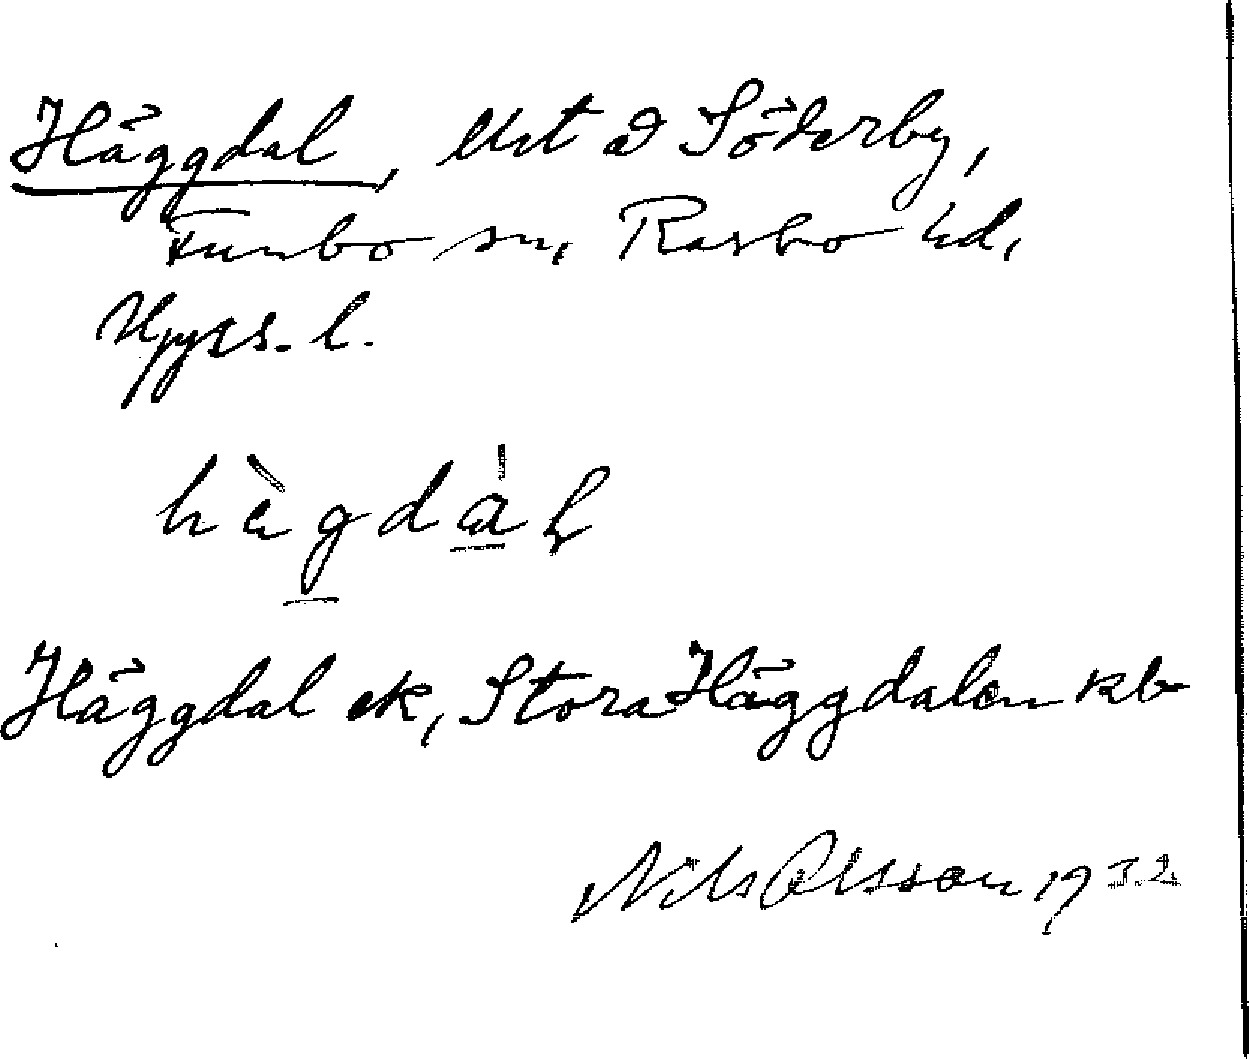 Häggdal, Utst å Söderby,
Funbo sn, Rasbo hd,
Upps. l.
hä̀gdàḷ
Häggdal ek, Stora Häggdalen kb
Nils Olsson 1932